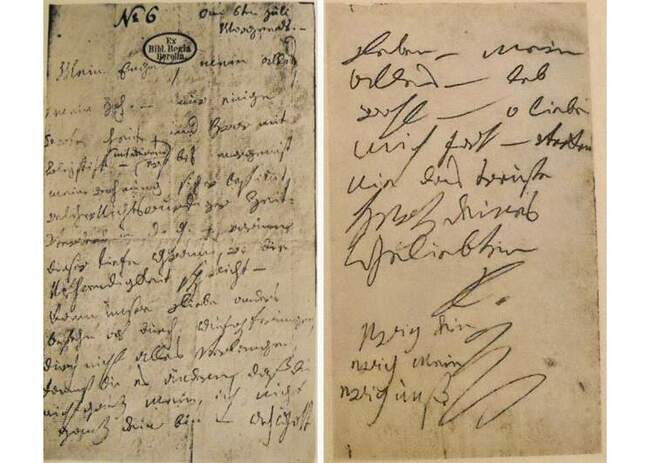 No 6 Am 6ten Juli
Morgends. –
Ex
Bibl. Regia
Berolin.
Mein Engel, mein alles
mein Ich. – nur einige
Worte heute, und zwar mit
Bleystift – (mit deinem) erst bis morgen ist
meine Wohnung sicher bestimmt,
welcher Nichtswürdiger Zeit-
Verderb in d. g. – warum
dieser tiefe Gram, wo die
Nothwendigkeit spricht –
Kann unsre Liebe anders
bestehn als durch Aufopferungen,
durch nicht alles verlangen,
kannst du es ändern, daß du
nicht ganz mein, ich nicht
ganz dein bin – Ach Gott
Leben – mein
alles – leb
wohl – o liebe
mich fort – verken
nie das treuste
Herz deines
Geliebten
L.
ewig dein
ewig mein
ewig unß